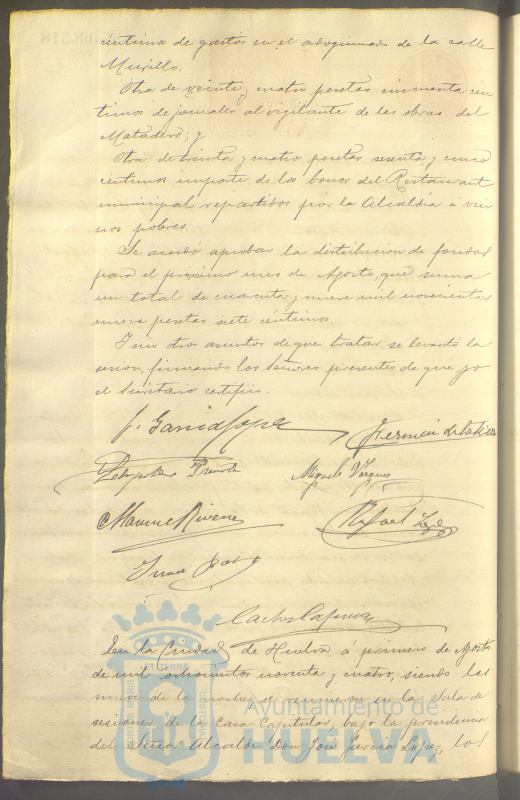 céntimos de gastos en el adoquinado de la calle
Murillo.
Otra de veinte y cuatro pesetas cincuenta cén
timos de jornales al vigilante de las obras del
Matadero; y
Otra de treinta y cuatro pesetas sesenta y cinco
centimos importe de los bonos del Restaurant
municipal repartidos por la Alcaldia á veci
nos pobres.
Se acordó aprobar la distribucion de fondos
para el próximo mes de Agosto, que suma
un total de cuarenta y nueve mil novecientas
nueve pesetas siete céntimos.
Y sin otros asuntos de que tratar se levantó la
sesion, firmando los Señores presentes de que yo
el Secretario certifico.
J. García López
Fermín de la
Miguel Vázquez
Manuel Rivero
Rafael
Juan
Carlos
En la Ciudad de Huelva á primero de Agosto
de mil ochocientos noventa y cuatro, siendo las
nueve de la noche, se reunieron en la Sala de
sesiones de la Casa Capitular, bajo la presidencia
del Señor Alcalde Don José García López, los
PORTUS MARIS
ET TERRÆ
CUSTODIA
Ayuntamiento de
HUELVA